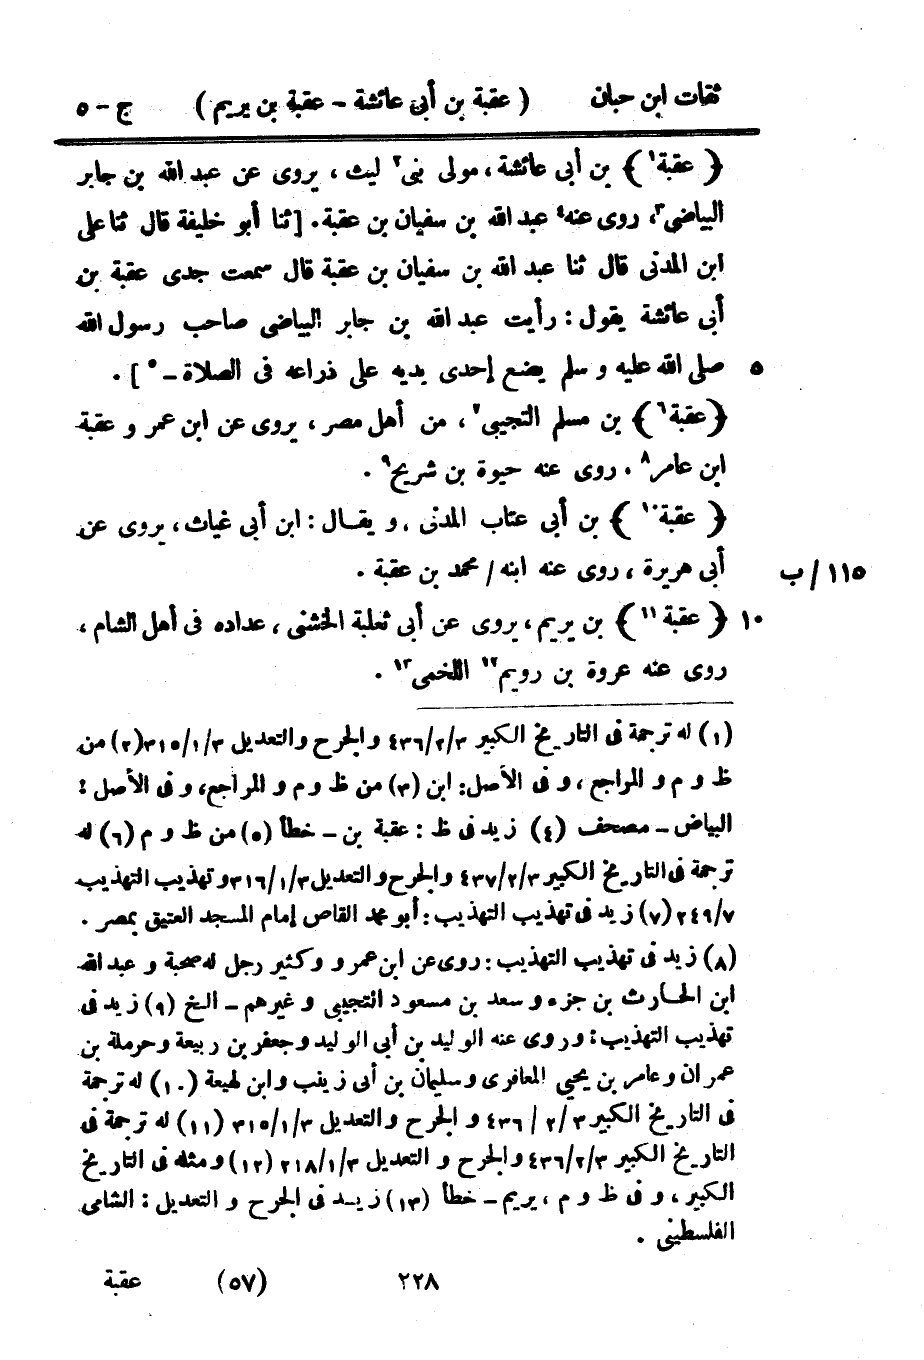 ثقات ابن حبان ( عقبة بن أبى عائشة - عقبة بن يريم ) ج - ٥
﴿ عقبة١ ﴾ بن أبى عائشة ، مولى بنى٢ ليث ، يروى عن عبد الله بن جابر
البياضى٣، روى عنه٤ عبد الله بن سفيان بن عقبة . [ ثنا أبو خليفة قال ثنا على
ابن المدنى قال ثنا عبد الله بن سفيان بن عقبة قال سمعت جدى عقبة بن
أبى عائشة يقول : رأيت عبد الله بن جابر البياضى صاحب رسول الله
٥ صلى الله عليه و سلم يضع إحدى يديه على ذراعه فى الصلاة -٥ ] .
﴿ عقبة٦ ﴾ بن مسلم التجيبى٧ ، من أهل مصر ، يروى عن ابن عمر و عقبة
ابن عامر٨ ، روى عنه حيوة بن شريح٩ .
﴿ عقبة١٠ ﴾ بن أبى عتاب المدنى ، و يقال : ابن أبى غياث ، يروى عن
١١٥/ب أبى هريرة ، روى عنه ابنه / محمد بن عقبة .
١٠ ﴿ عقبة١١ ﴾ بن يريم ، يروى عن أبى ثعلبة الخشنى ، عداده فى أهل الشام ،
روى عنه عروة بن رويم١٢ اللخمى١٣ .
(١) له ترجمة فى التاريخ الكبير ٤٣٦/٢/٣ والجرح والتعديل ٣١٥/١/٣ (٢) من
ظ و م و المراجع ، و فى الأصل : ابن (٣) من ظ و م و المراجع، و فى الأصل :
البياض - مصحف (٤) زيد فى ظ : عقبة بن - خطأ (٥) من ظ و م (٦) له
ترجمة فى التاريخ الكبير ٤٣٧/٢/٣ والجرح والتعديل ٣١٦/١/٣ و تهذيب التهذيب
٢٤٩/٧ (٧) زيد فى تهذيب التهذيب : أبو محمد القاص إمام المسجد العتيق بمصر .
(٨) زيد فى تهذيب التهذيب : روى عن ابن عمر و وكثير رجل له صحبة و عبد الله
ابن الحارث بن جزء و سعد بن مسعود التجيبى و غيرهم - الخ (٩) زيد فى
تهذيب التهذيب : و روى عنه الوليد بن أبى الوليد و جعفر بن ربيعة و حرملة بن
عمران و عامر بن يحيى المعافرى و سليمان بن أبى زينب و ابن لهيعة (١٠) له ترجمة
فى التاريخ الكبير ٤٣٦/٢/٣ و الجرح والتعديل ٣١٥/١/٣ (١١) له ترجمة فى
التاريخ الكبير ٤٣٦/٢/٣ والجرح و التعديل ٢١٨/١/٣ (١٢) و مثله فى التاريخ
الكبير ، و فى ظ و م ، يريم - خطأ (١٣) زيد فى الجرح و التعديل : الشامى
الفلسطينى .
٢٢٨ (٥٧) عقبة